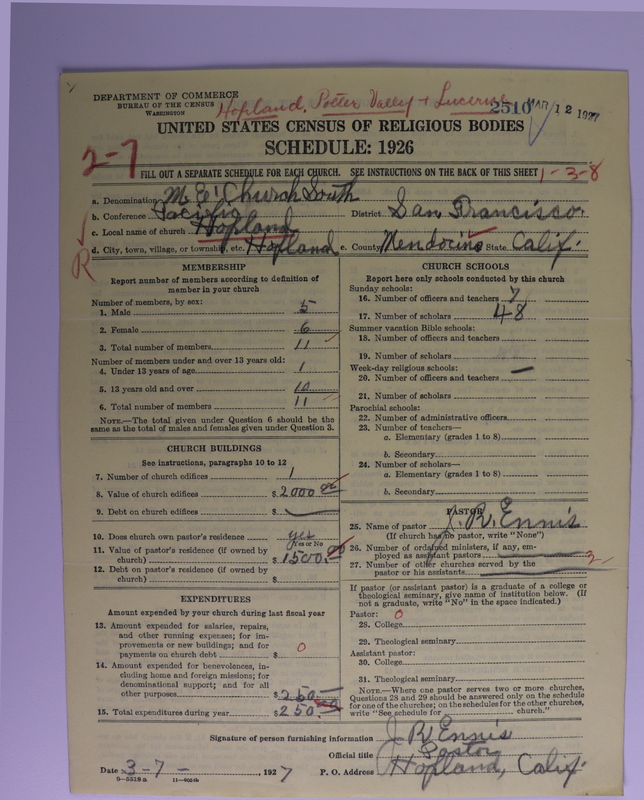 DEPARTMENT OF COMMERCE
BUREAU OF THE CENSUS
WASHINGTON
Hopland, Potter Valley + Lucerne
2510 MAR 12 1927
UNITED STATES CENSUS OF RELIGIOUS BODIES
SCHEDULE: 1926
2-7
FILL OUT A SEPARATE SCHEDULE FOR EACH CHURCH. SEE INSTRUCTIONS ON THE BACK OF THIS SHEET 1-3-8
a. Denomination M. E. Church South
b. Conference Pacific District San Francisco
c. Local name of church Hopland
d. City, town, village, or township, etc. Hopland e. County Mendocino State Calif.
R
MEMBERSHIP
Report number of members according to definition of
member in your church
Number of members, by sex:
1. Male 5
2. Female 6
3. Total number of members 11
Number of members under and over 13 years old:
4. Under 13 years of age 1
5. 13 years old and over 10
6. Total number of members 11
NOTE.—The total given under Question 6 should be the
same as the total of males and females given under Question 3.
CHURCH BUILDINGS
See instructions, paragraphs 10 to 12
7. Number of church edifices 1
8. Value of church edifices $2000.00
9. Debt on church edifices $
10. Does church own pastor's residence? yes
Yes or No
11. Value of pastor's residence (if owned by
church) $1500.00
12. Debt on pastor's residence (if owned by
church) $
EXPENDITURES
Amount expended by your church during last fiscal year
13. Amount expended for salaries, repairs,
and other running expenses; for im-
provements or new buildings; and for
payments on church debt $ 0
14. Amount expended for benevolences, in-
cluding home and foreign missions; for
denominational support; and for all
other purposes $250.
15. Total expenditures during year $250.00
CHURCH SCHOOLS
Report here only schools conducted by this church
Sunday schools:
16. Number of officers and teachers 7
17. Number of scholars 48
Summer vacation Bible schools:
18. Number of officers and teachers
19. Number of scholars
Week-day religious schools: —
20. Number of officers and teachers
21. Number of scholars
Parochial schools:
22. Number of administrative officers
23. Number of teachers—
a. Elementary (grades 1 to 8)
b. Secondary
24. Number of scholars—
a. Elementary (grades 1 to 8)
b. Secondary
PASTOR
25. Name of pastor J. R. Ennis
(If church has no pastor, write "None")
26. Number of ordained ministers, if any, em-
ployed as assistant pastors
27. Number of other churches served by the
pastor or his assistants 2
If pastor (or assistant pastor) is a graduate of a college or
theological seminary, give name of institution below. (If
not a graduate, write "No" in the space indicated.)
Pastor: 0
28. College
29. Theological seminary
Assistant pastor:
30. College
31. Theological seminary
NOTE.—Where one pastor serves two or more churches,
Questions 28 and 29 should be answered only on the schedule
for one of the churches; on the schedules for the other churches,
write "See schedule for church."
Signature of person furnishing information J. R. Ennis
Official title Pastor
Date 3-7- 1927 P. O. Address Hopland, Calif.